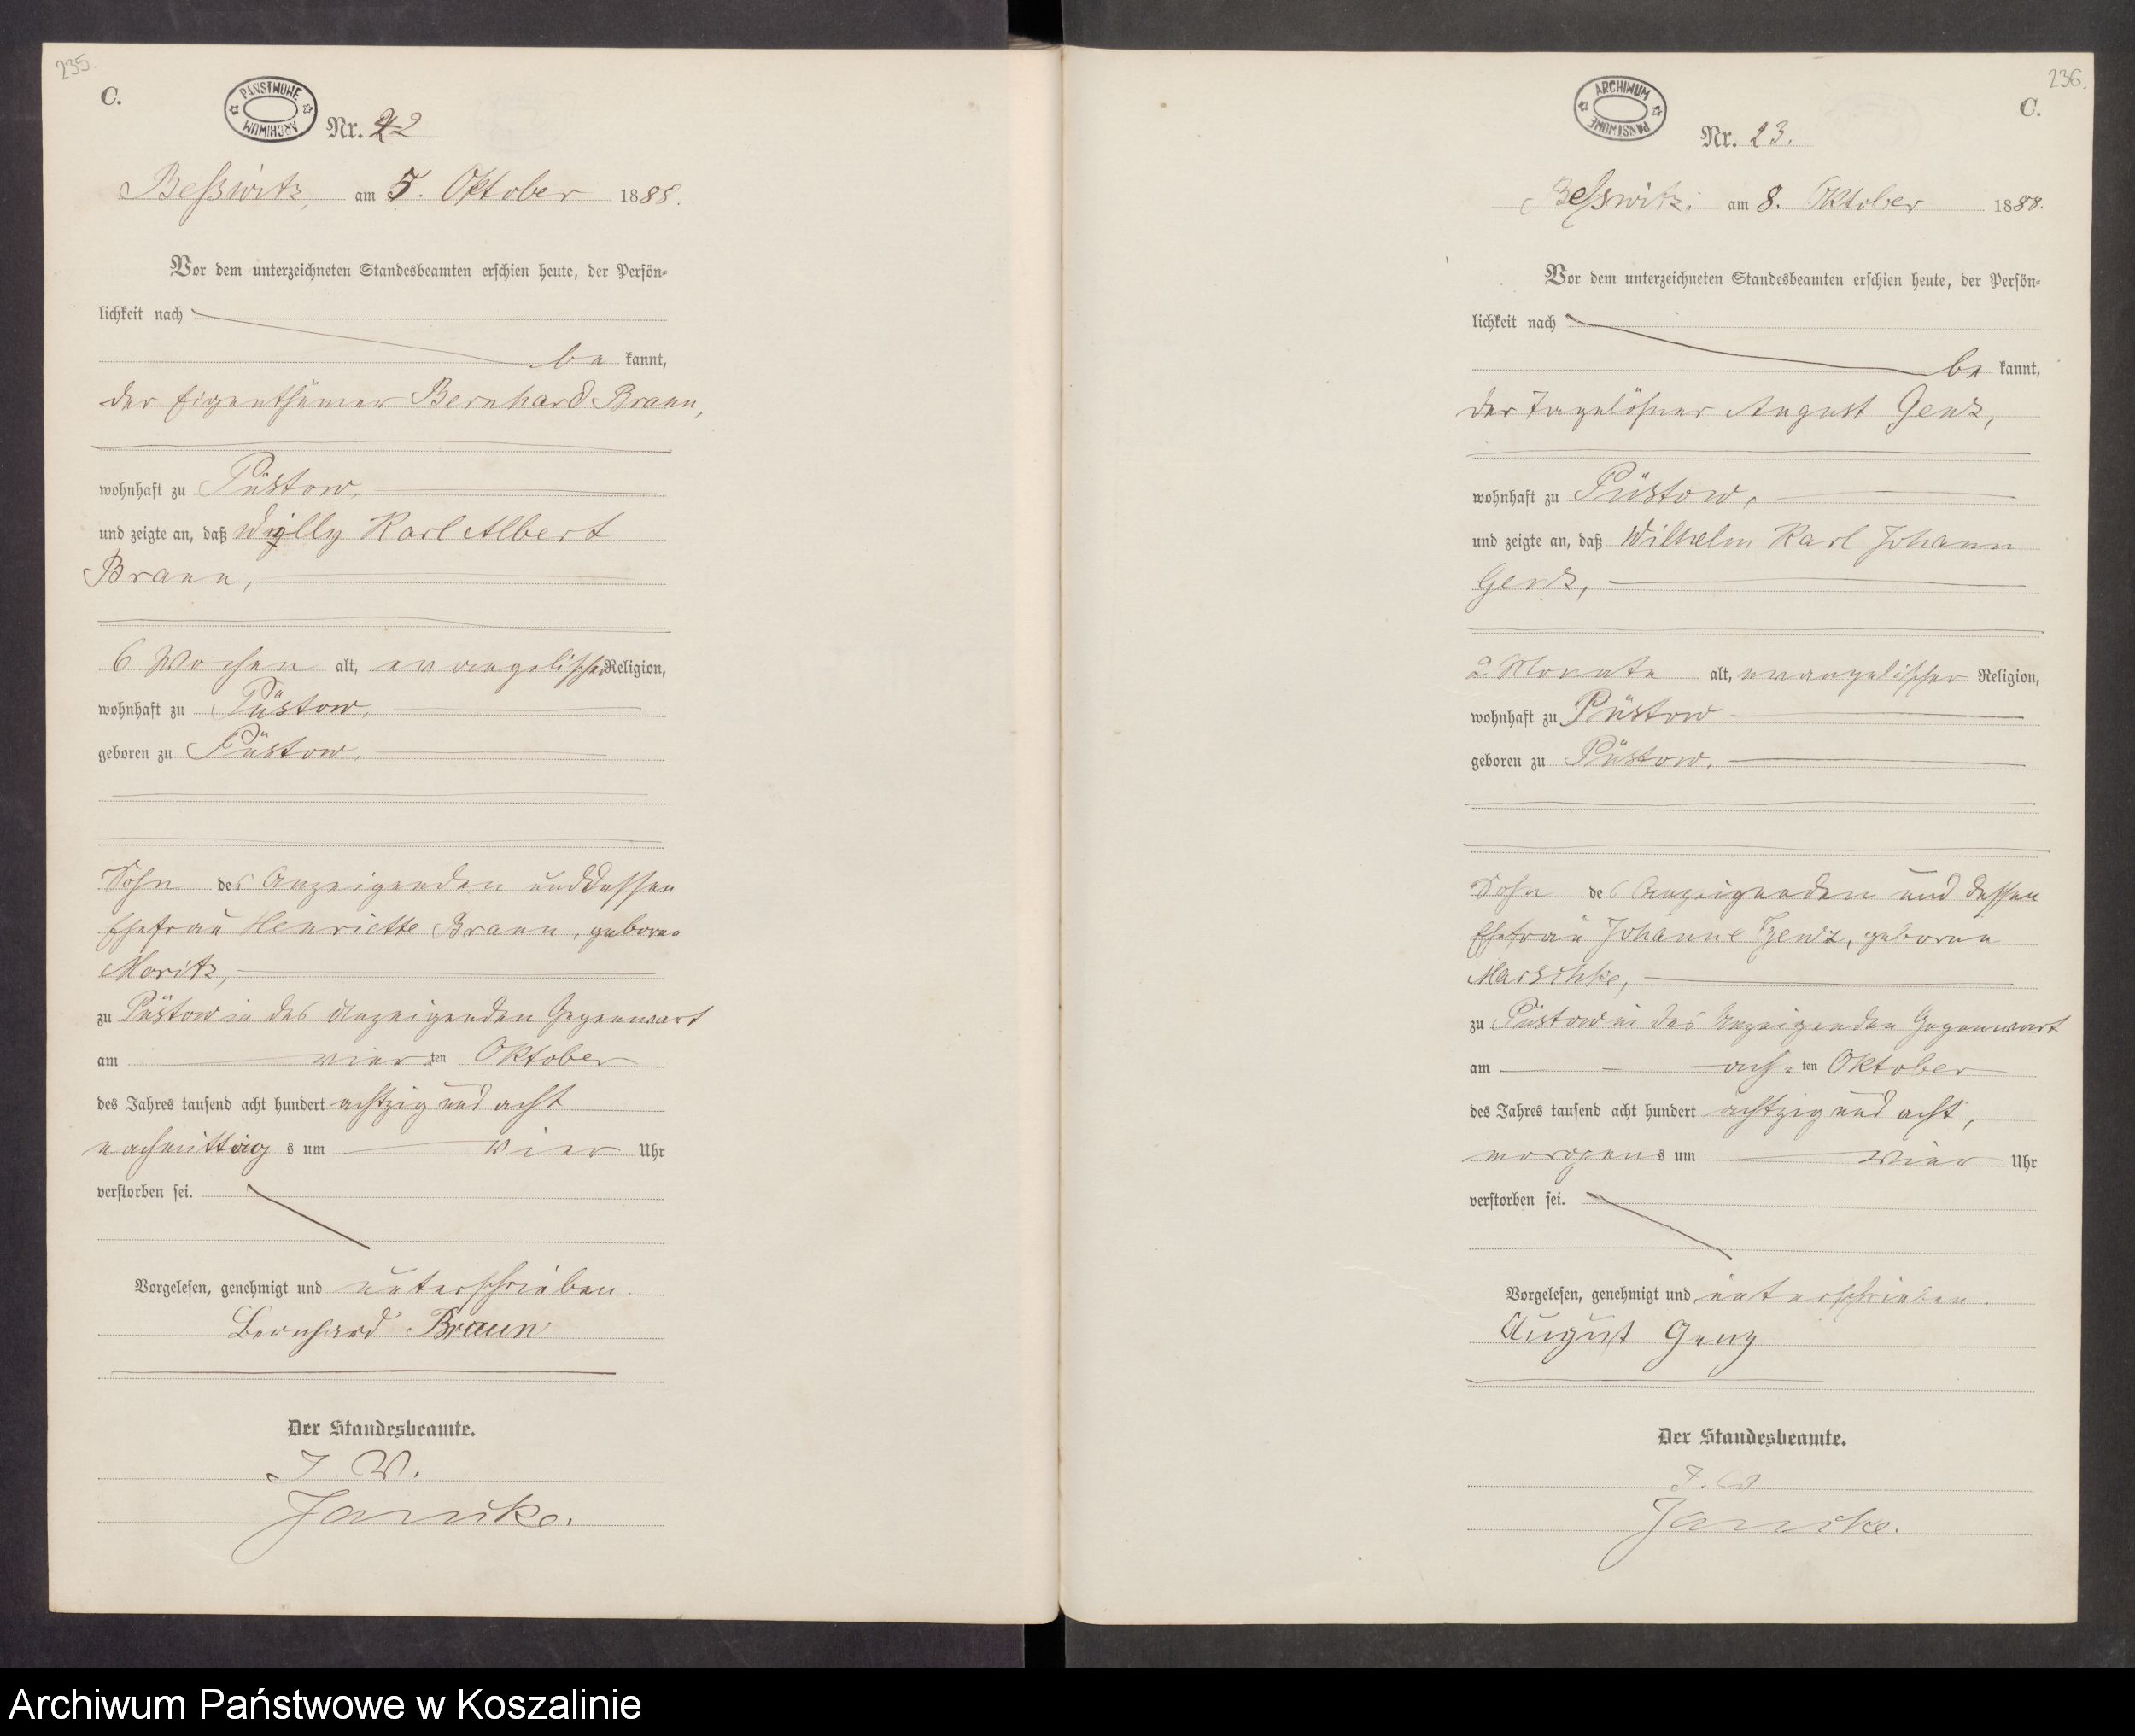 235.
C.
PAŃSTWOWE ARCHIWUM
Nr. 22
Beßwitz, am 5. Oktober 1888.
Vor dem unterzeichneten Standesbeamten erschien heute, der Persön-
lichkeit nach
be kannt,
der Eigenthümer Bernhard Braun,
wohnhaft zu Püstow,
und zeigte an, daß Willy Karl Albert
Braun,
6 Wochen alt, evangelischer Religion,
wohnhaft zu Püstow,
geboren zu Püstow,
Sohn des Anzeigenden und dessen
Ehefrau Henriette Braun, geborne
Moritz,
zu Püstow in des Anzeigenden Gegenwart
am vier ten Oktober
des Jahres tausend acht hundert achtzig und acht
nachmittag s um vier Uhr
verstorben sei.
Vorgelesen, genehmigt und unterschrieben.
Bernhard Braun
Der Standesbeamte.
J. V.
Jancke.
236.
C.
ARCHIWUM PAŃSTWOWE
Nr. 23.
Beßwitz, am 8. Oktober 1888.
Vor dem unterzeichneten Standesbeamten erschien heute, der Persön-
lichkeit nach
be kannt,
der Tagelöhner August Genz,
wohnhaft zu Püstow,
und zeigte an, daß Wilhelm Karl Johann
Genz,
2 Monate alt, evangelischer Religion,
wohnhaft zu Püstow
geboren zu Püstow.
Sohn des Anzeigenden und dessen
Ehefrau Johanne Genz, geborne
Marschke,
zu Püstow in des Anzeigenden Gegenwart
am ach- ten Oktober
des Jahres tausend acht hundert achtzig und acht,
morgens um vier Uhr
verstorben sei.
Vorgelesen, genehmigt und unterschrieben.
August Genz
Der Standesbeamte.
J. V.
Jancke.
Archiwum Państwowe w Koszalinie